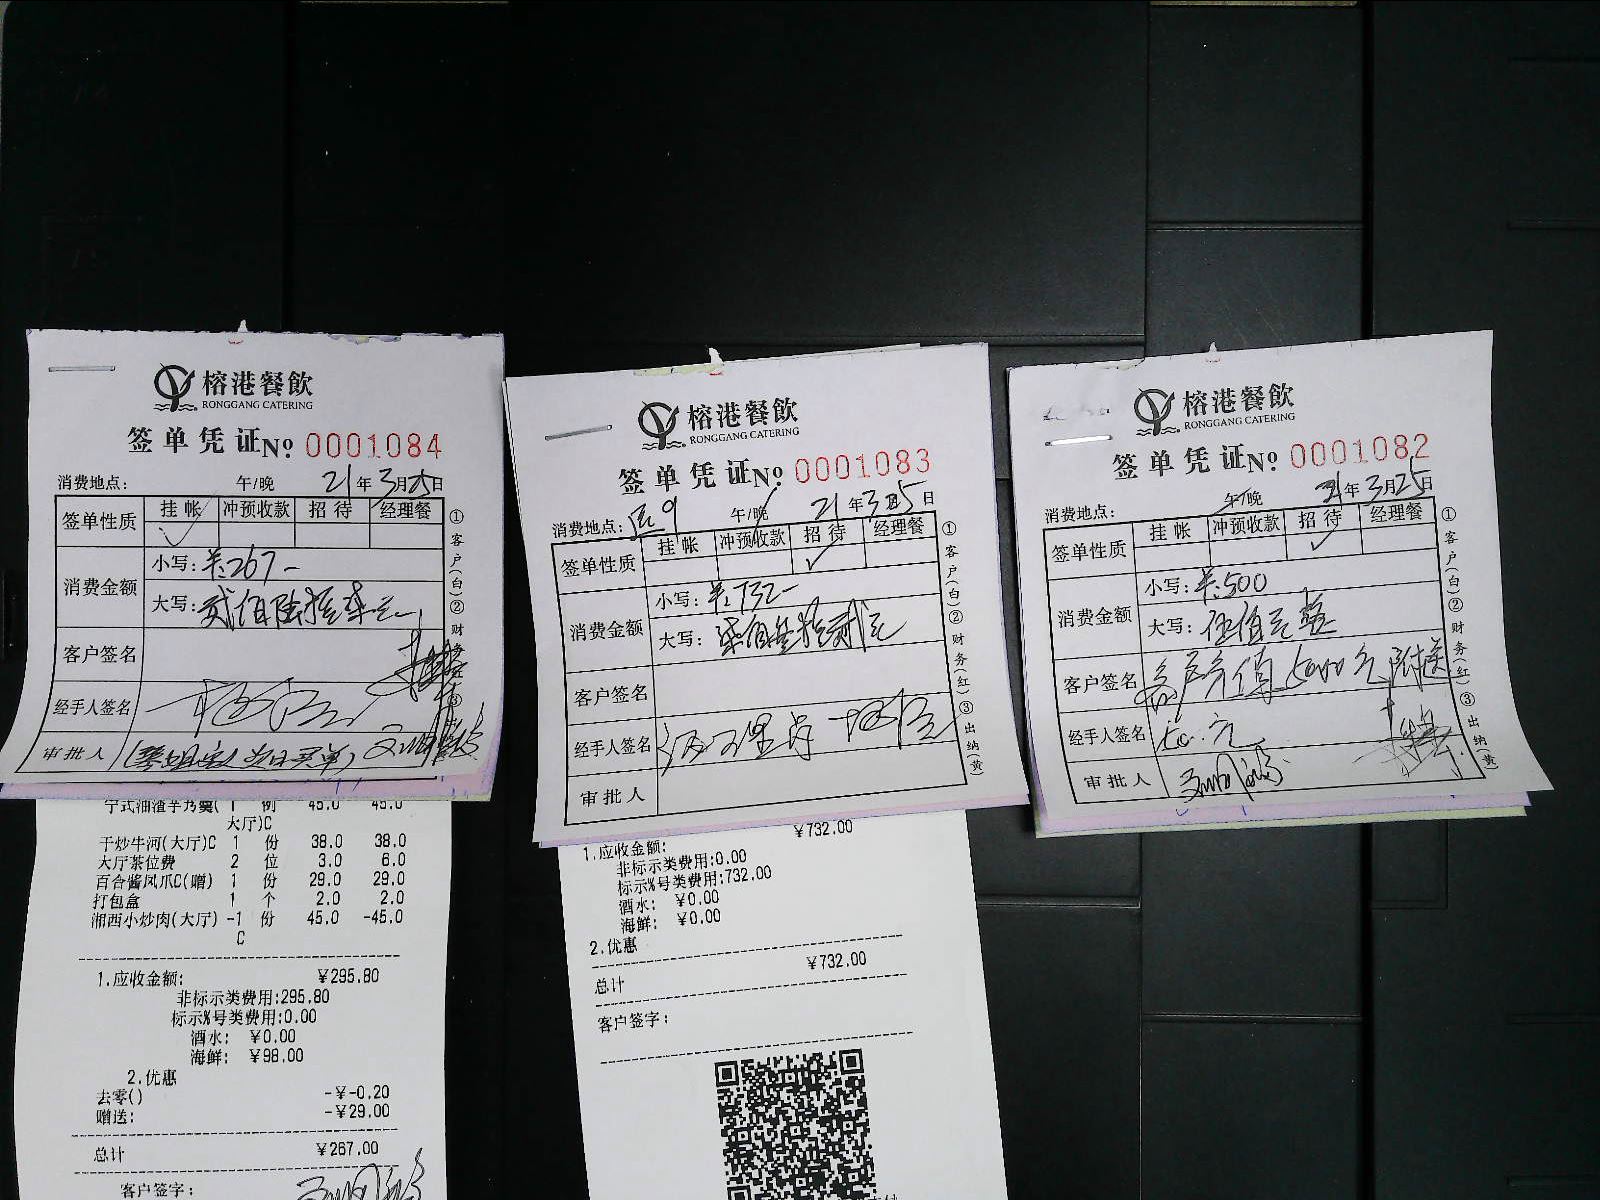 榕港餐飲
RONGGANG CATERING
签单凭证 No 0001084
消费地点: 午/晚 21年3月25日
签单性质 挂帐 冲预收款 招待 经理餐
消费金额 小写: ¥:267-
大写: 贰佰陆拾柒元
客户签名
经手人签名
审批人
①客户(白)②财务(红)③
大厅)C
干炒牛河(大厅)C 1 份 38.0 38.0
大厅茶位费 2 位 3.0 6.0
百合酱凤爪C(赠) 1 份 29.0 29.0
打包盒 1 个 2.0 2.0
湘西小炒肉(大厅) -1 份 45.0 -45.0
C
1.应收金额: ¥295.80
非标示类费用:295.80
标示%号类费用:0.00
酒水: ¥0.00
海鲜: ¥98.00
2.优惠
去零() -¥-0.20
赠送: -¥29.00
总计 ¥267.00
客户签字:
榕港餐飲
RONGGANG CATERING
签单凭证 No 0001083
消费地点: 午/晚 21年3月25日
签单性质 挂帐 冲预收款 招待 经理餐
消费金额 小写: ¥:732-
大写: 柒佰叁拾贰元
客户签名
经手人签名
审批人
①客户(白)②财务(红)③出纳(黄)
¥732.00
1.应收金额:
非标示类费用:0.00
标示%号类费用:732.00
酒水: ¥0.00
海鲜: ¥0.00
2.优惠
¥732.00
总计
客户签字:
榕港餐飲
RONGGANG CATERING
签单凭证 No 0001082
消费地点: 午/晚 21年3月25日
签单性质 挂帐 冲预收款 招待 经理餐
消费金额 小写: ¥:500
大写: 伍佰元整
客户签名
经手人签名
审批人
①客户(白)②财务(红)③出纳(黄)